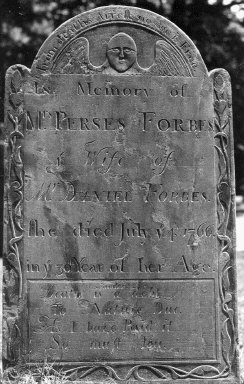 In Memory of
Mrs. PERSES FORBES
ye Wife of
Mr. DANIEL FORBES.
she died July ye 1766
in ye Year of her Age.
Death is a debt
To Nature Due.
As I have Paid it
So must You.